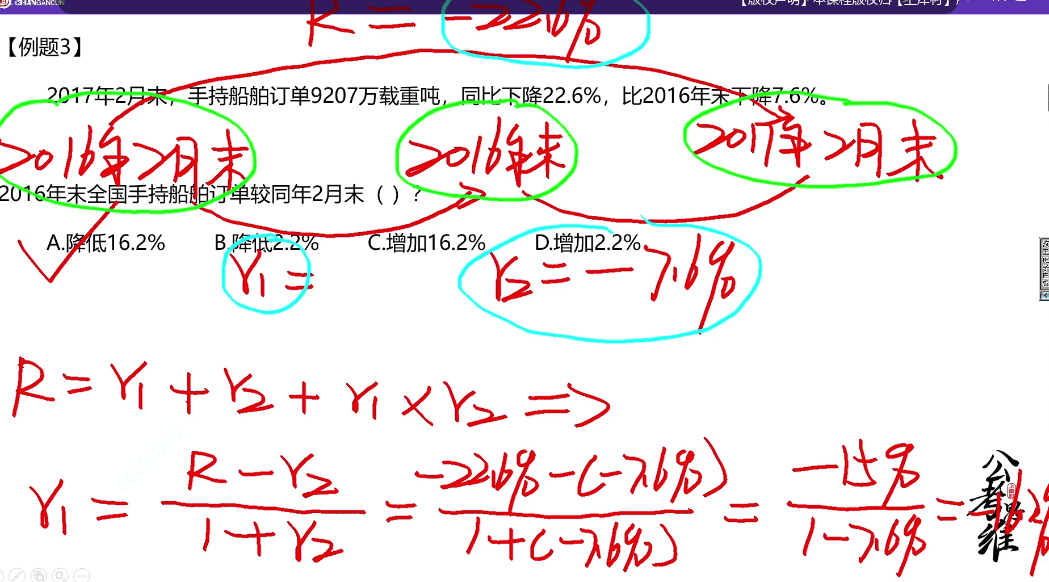 R = -22.6%
【例题3】
2017年2月末，手持船舶订单9207万载重吨，同比下降22.6%，比2016年末下降7.6%。
2016年2月末 2016年末 2017年2月末
2016年末全国手持船舶订单较同年2月末（ ）？
A.降低16.2% B.降低2.2% C.增加16.2% D.增加2.2%
r₁ = r₂ = -7.6%
R = r₁ + r₂ + r₁ × r₂ ⇒
r₁ = (R - r₂)/(1 + r₂) = (-22.6% - (-7.6%))/(1 + (-7.6%)) = (-15%)/(1 - 7.6%) =